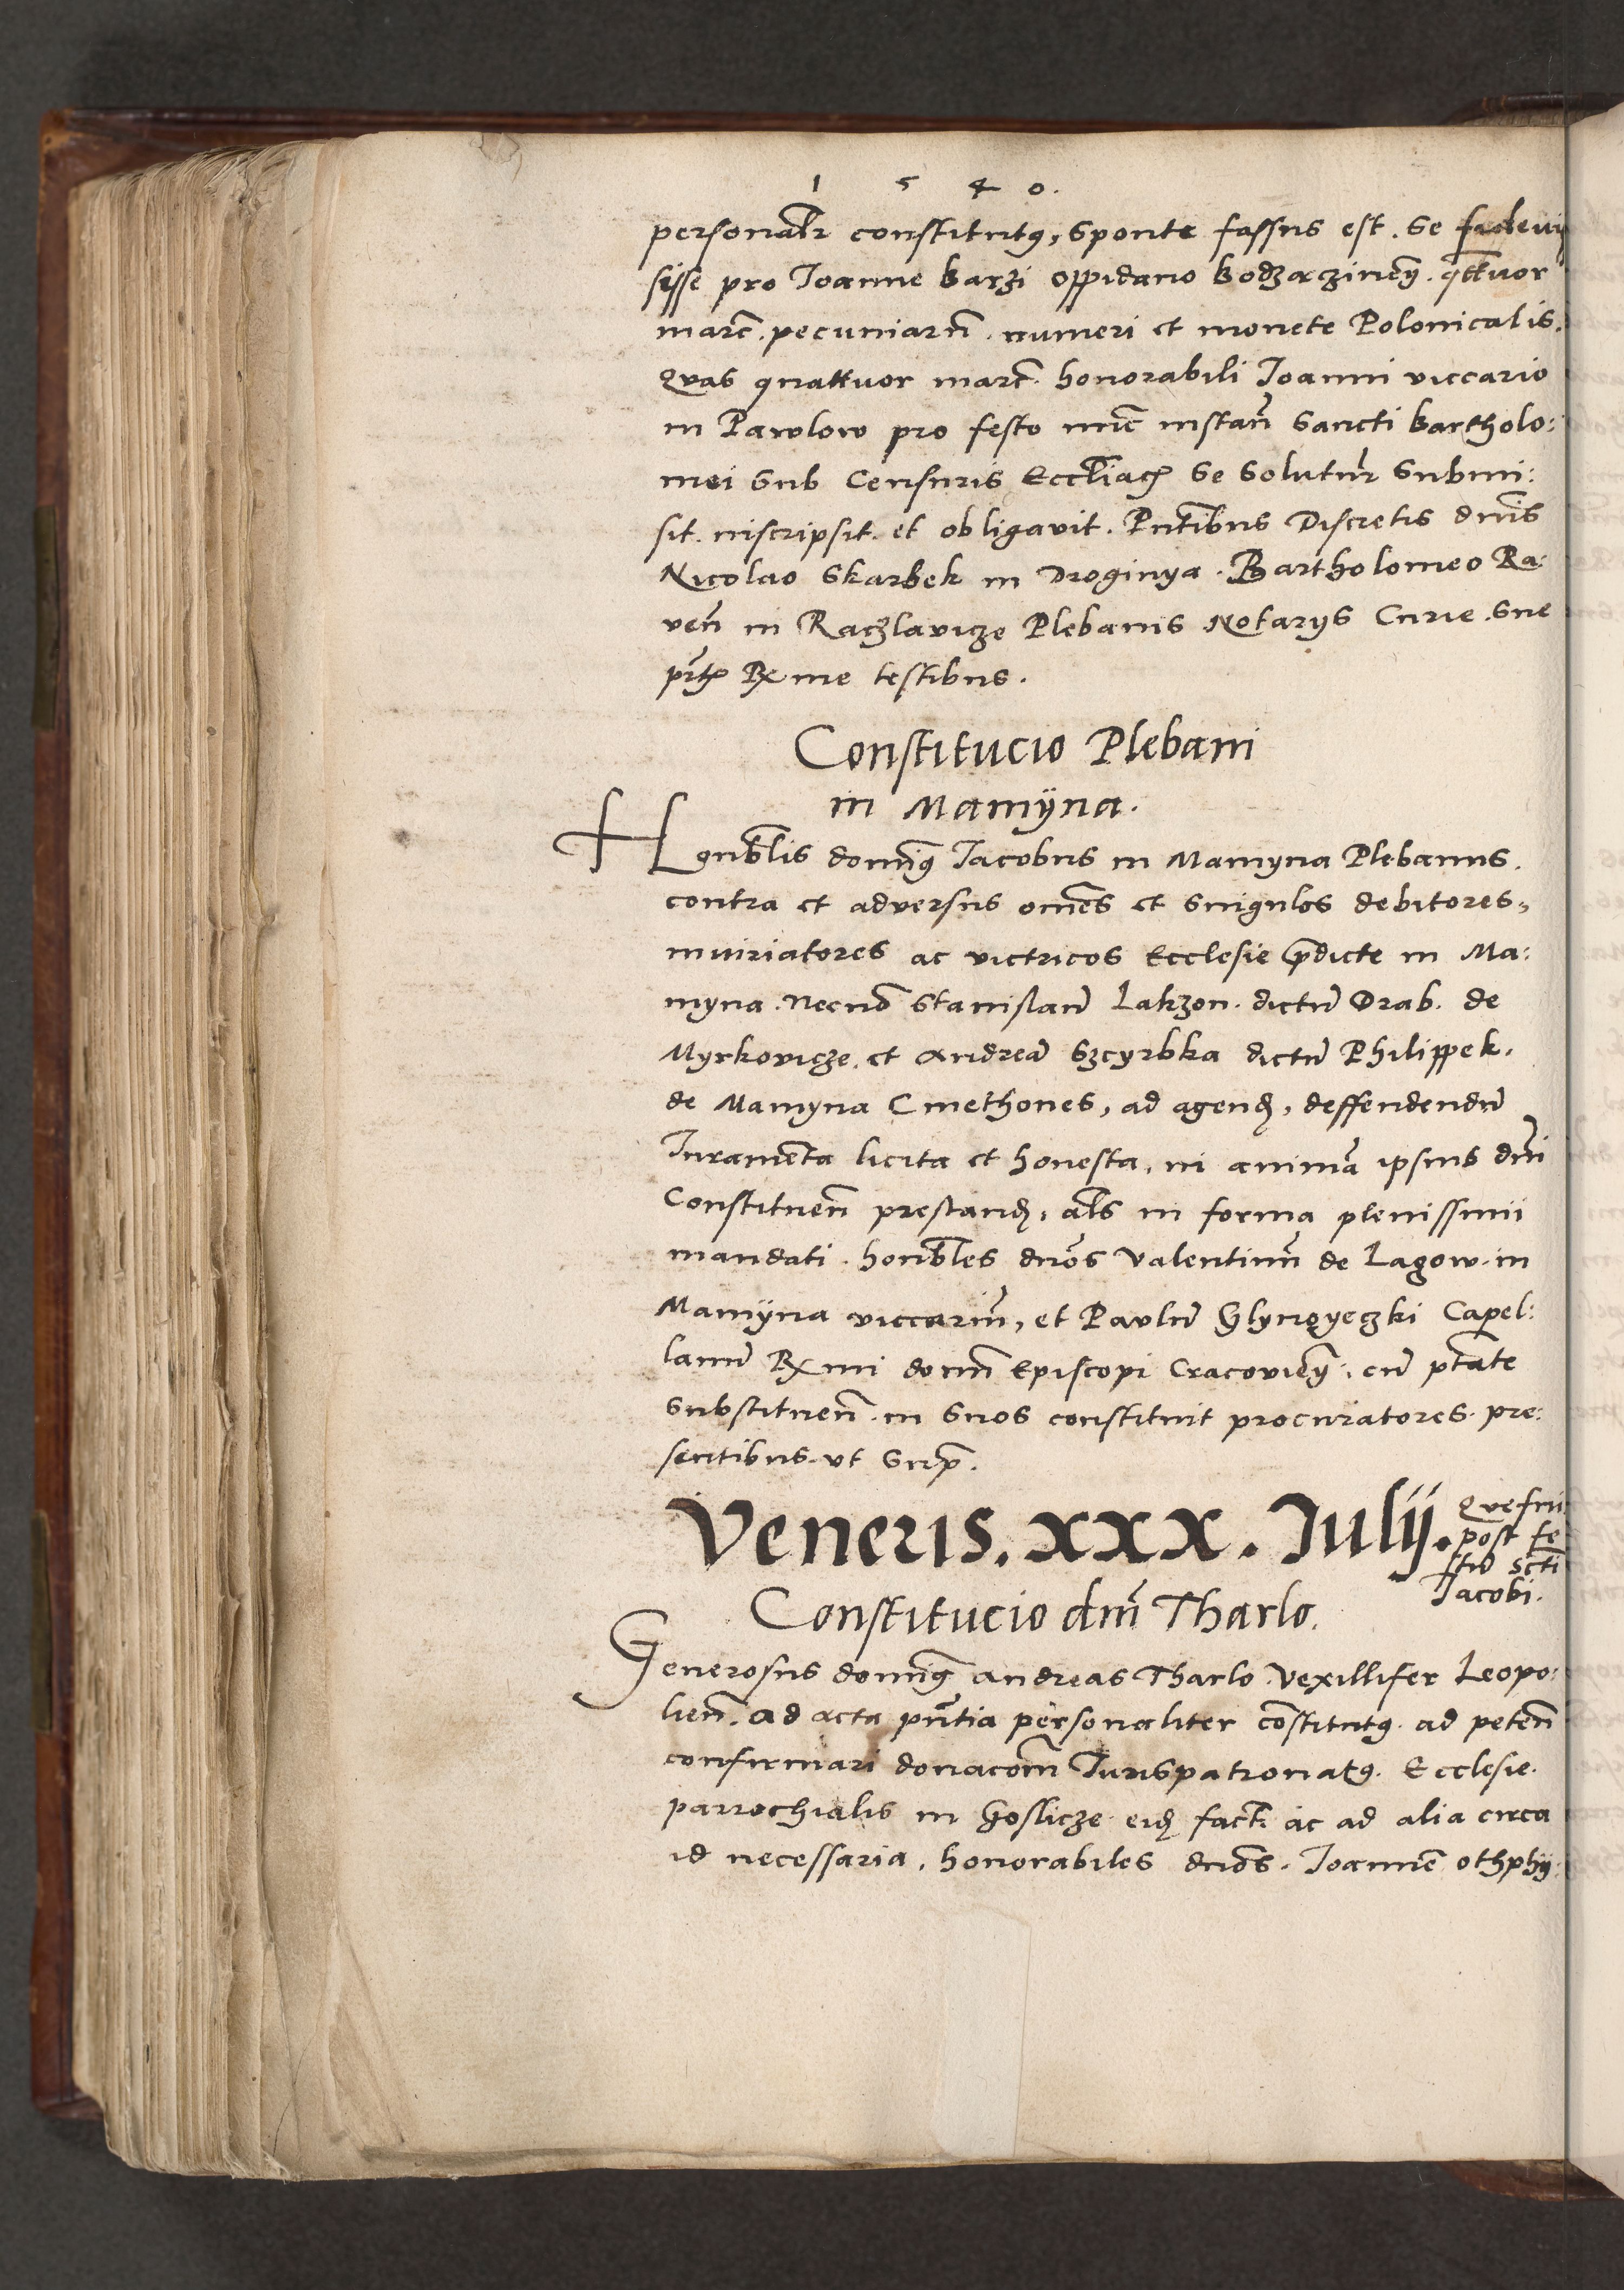 1 5 4 0.
personalr constitutq, sponte fassus est. se fideiu
sisse pro Joanne barzi oppidano bodzaczinen. qttuor
marc. pecuniaru. numeri et monete Polonicalis.
Quas quattuor marc. honorabili Joanni viccario
in Pawlow pro festo nunc instan Sancti bartholo:
mei sub Censuris Eccliac se soluturu submi:
sit. inscripsit. et obligavit. Pntibus Discretis dnis
Nicolao Skarbek in Droginya. Bartholomeo Ra:
ven in Raczlavicze Plebanis Notarijs Curie. sue
prte Rx me testibus.
Constitucio Plebani
in Mamÿna.
Honblis dominq Jacobus in Mamyna Plebanus.
contra et adversus omes et singulos debitores,
iniuriatores ac victricos Ecclesie pdicte in Ma:
myna. necno Stanislau Lakzon. dictu Drab. de
Myrkovicze. et Andrea Szcyrbka dictu Philippek.
de Mamyna Cmethones, ad agend, deffendendu
Juramenta licita et honesta, in anima ipsius dni
Constituen prestand, als in forma plenissimi
mandati. honbles dnos Valentinu de Lagow. in
Mamÿna viccariu, et Paulu Glynyeczki Capel:
lanu Rx mi domi Episcopi Cracovien. cu ptate
substituen. in suos constituit procuratores. pre:
sentibus. vt sup.
Veneris. xxx. Julij.
Que fui
post fe
stu scti
Jacobi.
Constitucio dni Tharlo.
Generosus dominq Andreas Tharlo Vexillifer Leopo:
lien. ad acta pntia personaliter constitutq. ad peten
confirmari donacom Jurispatronatq. Ecclesie.
parrochialis in Goslicze eid fact ac ad alia circa
id necessaria, honorabiles dnos. Joanne othphij: